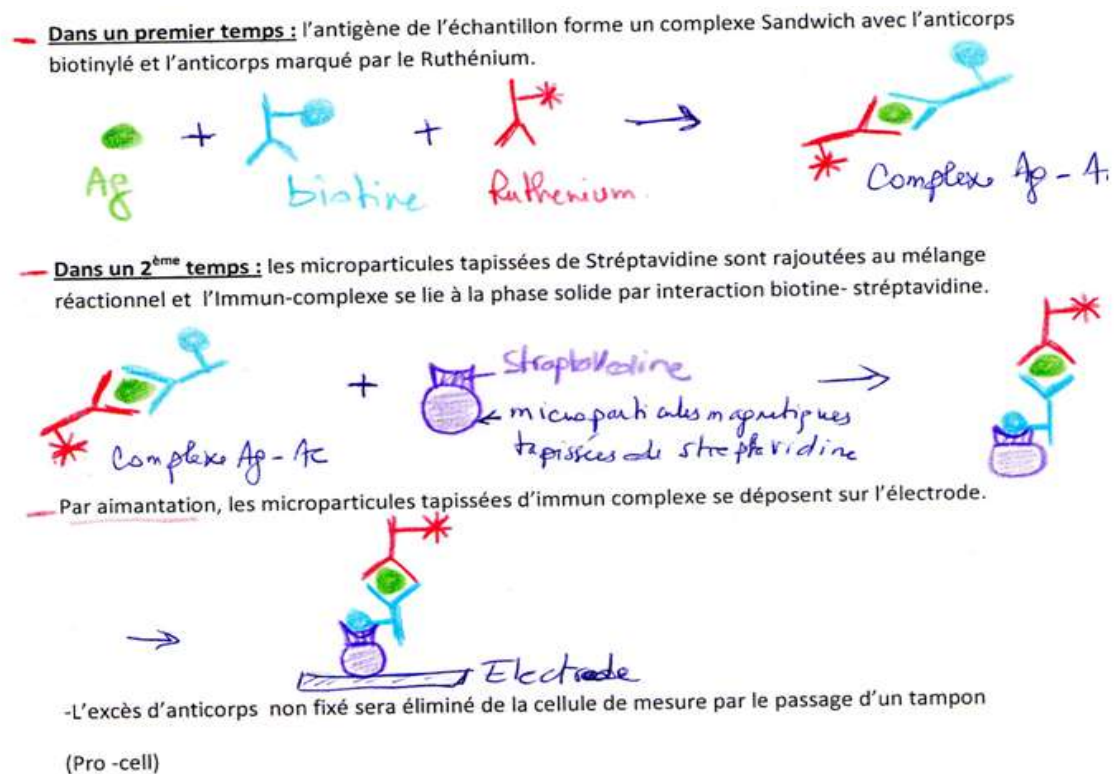 Dans un premier temps : l'antigène de l'échantillon forme un complexe Sandwich avec l'anticorps
biotinylé et l'anticorps marqué par le Ruthénium.
+ + →
Ag biotine Ruthenium. Complexe Ag - A
Dans un 2ème temps : les microparticules tapissées de Stréptavidine sont rajoutées au mélange
réactionnel et l'Immun-complexe se lie à la phase solide par interaction biotine- stréptavidine.
+ →
microparticules magnétiques
Complexe Ag - Ac tapissées de
Par aimantation, les microparticules tapissées d'immun complexe se déposent sur l'électrode.
→
Electrode
-L'excès d'anticorps non fixé sera éliminé de la cellule de mesure par le passage d'un tampon
(Pro -cell)